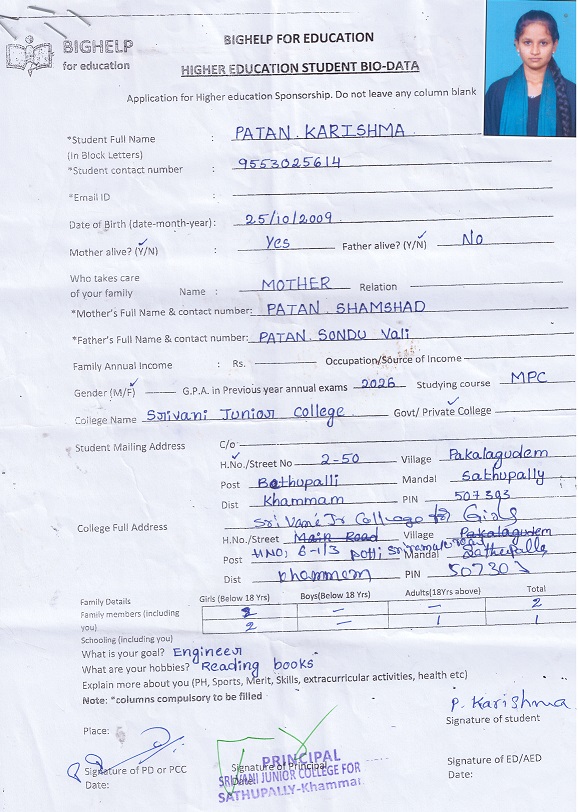 BIGHELP
for education
BIGHELP FOR EDUCATION
HIGHER EDUCATION STUDENT BIO-DATA
Application for Higher education Sponsorship. Do not leave any column blank
*Student Full Name : PATAN. KARISHMA
(In Block Letters)
*Student contact number : 9553025614
*Email ID :
Date of Birth (date-month-year): 25/10/2009
Mother alive? (Y/N) : Yes Father alive? (Y/N) No
Who takes care
of your family Name : MOTHER Relation
*Mother's Full Name & contact number: PATAN. SHAMSHAD
*Father's Full Name & contact number: PATAN. SONDU Vali
Family Annual Income : Rs. Occupation/Source of Income
Gender (M/F) G.P.A. in Previous year annual exams 2026 Studying course MPC
College Name Srivani Junior College Govt/ Private College
Student Mailing Address C/o
H.No./Street No 2-50 Village Pakalagudem
Post Bethupalli Mandal Sathupally
Dist Khammam PIN 507303
College Full Address Sri Vani Jr College for Girls
H.No./Street Main Road Village Pakalagudem
Post HNO; 6-1/3 potti Mandal Sathupally
Dist Khammam PIN 507303
Family Details Girls (Below 18 Yrs) Boys(Below 18 Yrs) Adults(18Yrs above) Total
Family members (including you) 2 – – 2
Schooling (including you) 2 – 1 1
What is your goal? Engineer
What are your hobbies? Reading books
Explain more about you (PH, Sports, Merit, Skills, extracurricular activities, health etc)
Note: *columns compulsory to be filled
P. Karishma
Signature of student
Place:
Signature of PD or PCC
Date:
Signature of Principal
Date:
PRINCIPAL
SRIVANI JUNIOR COLLEGE FOR
SATHUPALLY-Khammam
Signature of ED/AED
Date: